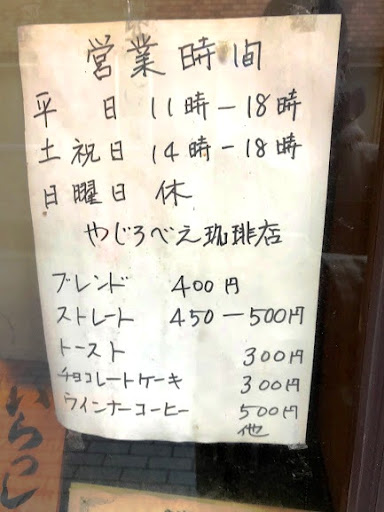 営業時間
平日 11時-18時
土祝日 14時-18時
日曜日 休
やじろべえ珈琲店
ブレンド 400円
ストレート 450-500円
トースト 300円
チョコレートケーキ 300円
ウインナーコーヒー 500円
他
いらっし